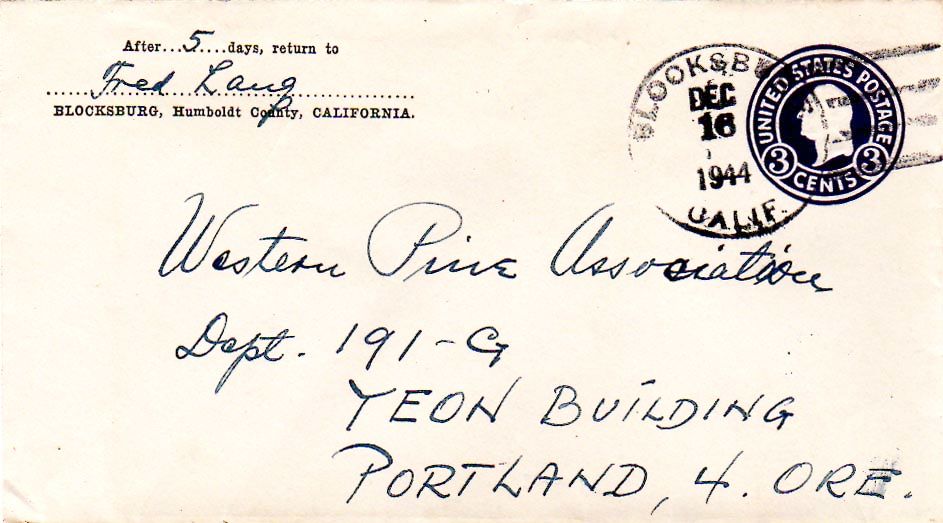 After...5....days, return to
Fred Lang
BLOCKSBURG, Humboldt County, CALIFORNIA.
BLOCKSBURG
DEC
16
1944
CALIF.
UNITED STATES POSTAGE
3 CENTS 3
Western Pine Association
Dept. 191-G
YEON BUILDING
PORTLAND, 4. ORE.